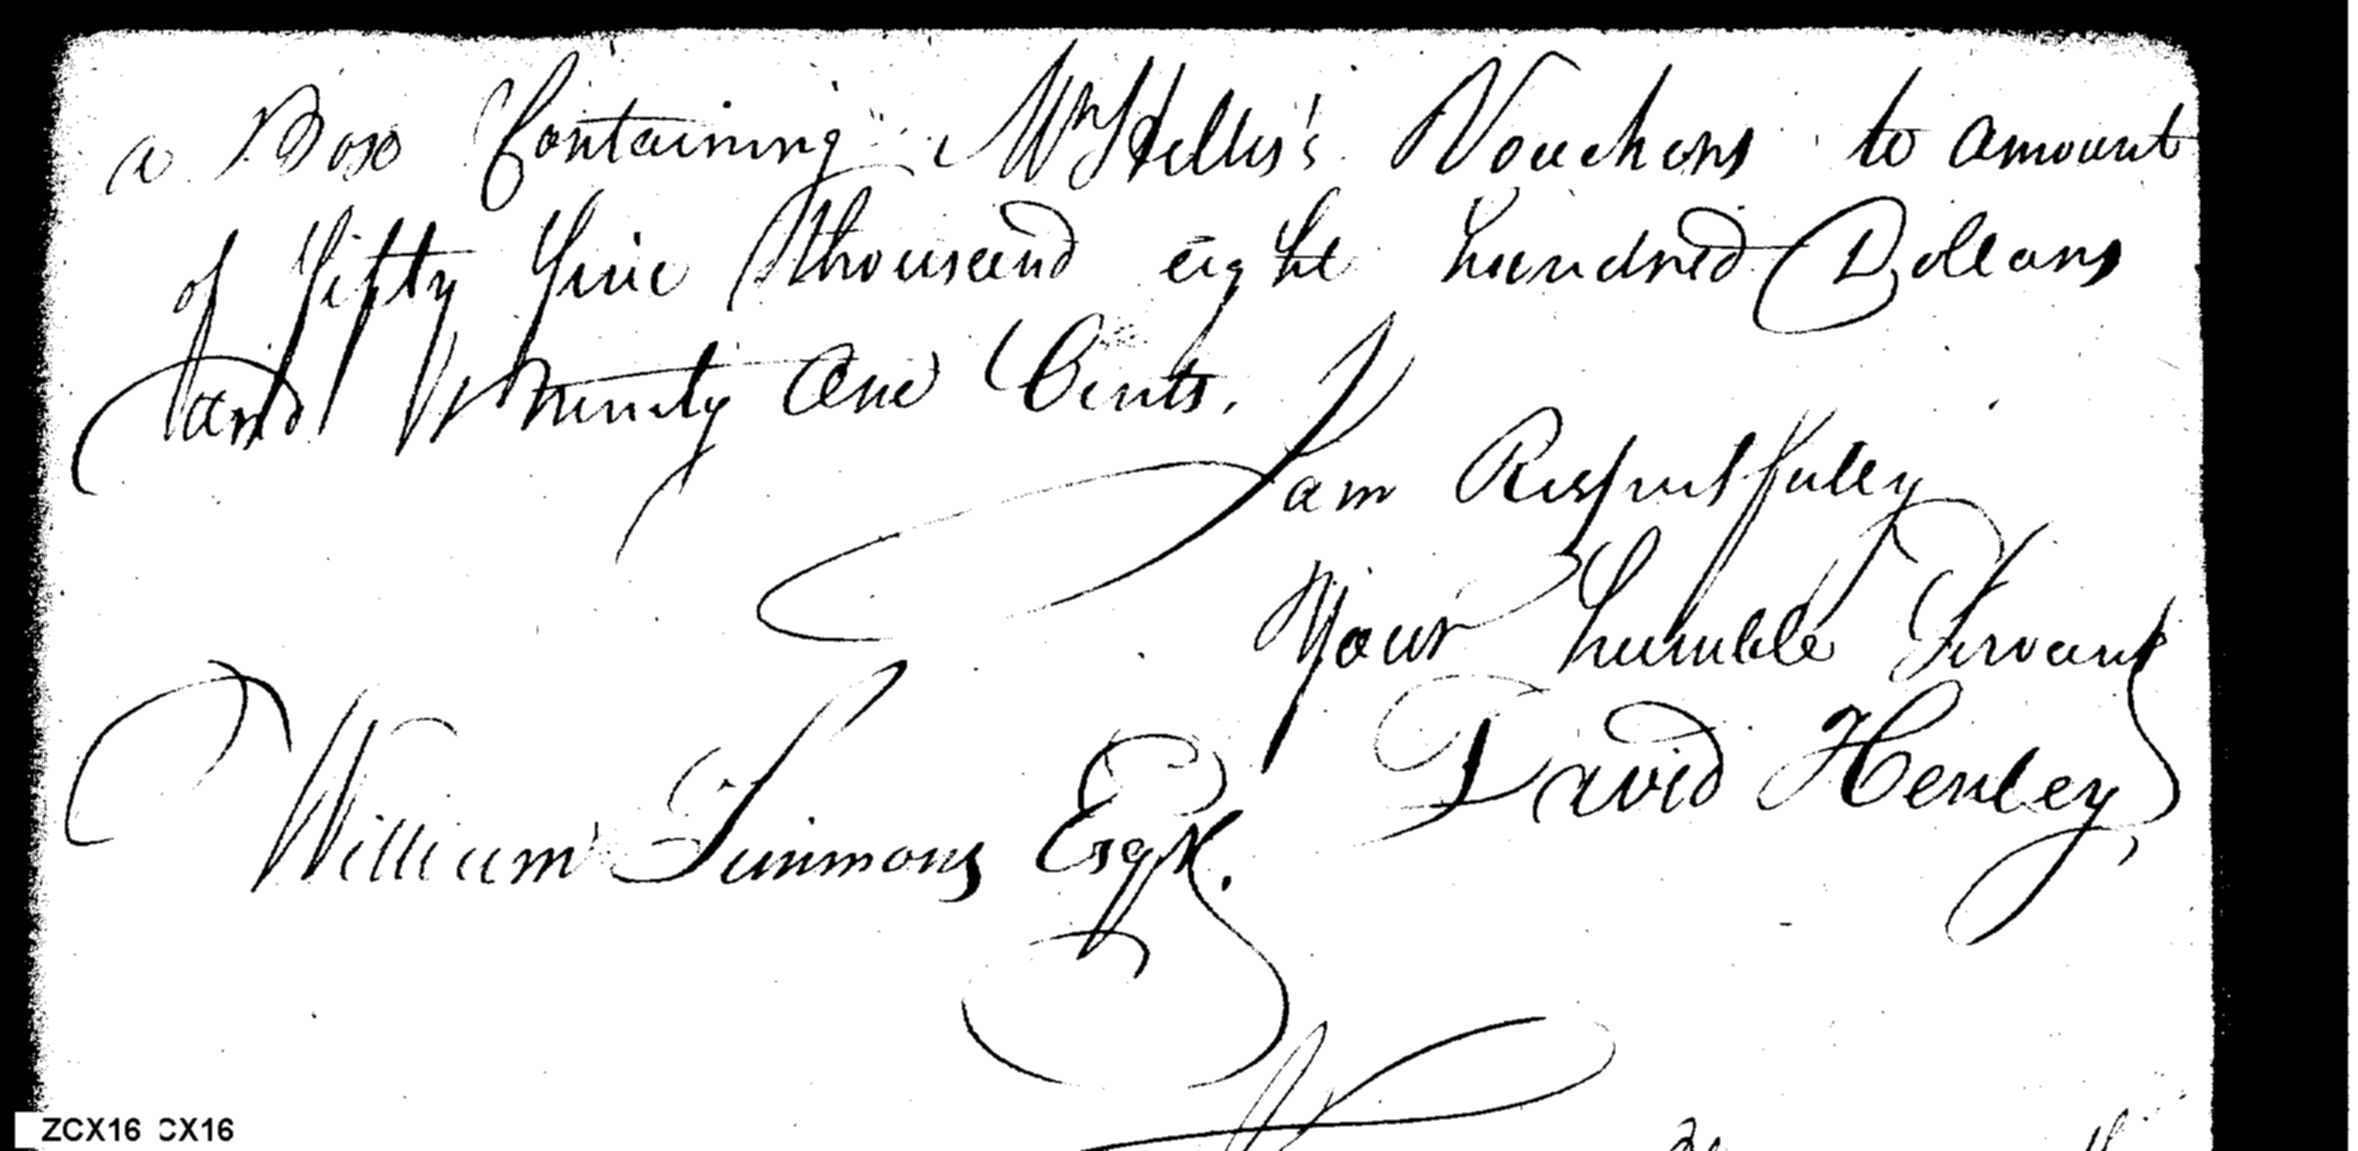 a Box Containing Mr Hillis's Vouchers to amount
of fifty five thousand eight hundred Dollars
and Ninety One Cents.
I am Respectfully
Your humble Servant
David Henley,
William Simmons Esqr.
ZCX16 CX16